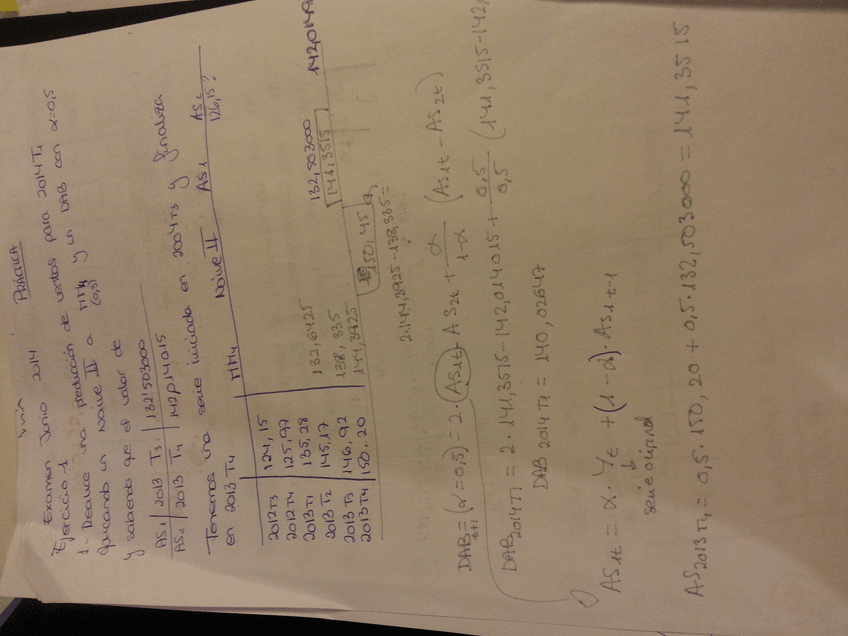 PRÁCTICA
Examen Junio 2014
Ejercicio 1
1- Realice una predicción de ventas para 2014T1
aplicando un Naive II a MM4 y un DAB con α=0,5
(0,5)
y sabiendo que el valor de
AS1 2013 T3 132'503000
AS2 2013 T4 142,014015
Tenemos una serie iniciada en 2004T3 y finaliza
en 2013 T4
MM4 Naive II AS1 AS2
126,15?
2012T3 124,15
2012T4 125,97
2013T1 135,28 132,6425
2013 T2 145,17 138,335 132,503000
2013 T3 146,92 144,3925 141,3515 142,014
2013T4 150,20 150,45
2·144,3925-138,335=
DAB t+1 = (α=0,5) = 2·AS1t - AS2t + α/1-α (AS1t - AS2t)
DAB 2014T1 = 2·141,3515-142,014015 + 0,5/0,5 (141,3515-142,
DAB 2014 T1 = 140,02647
AS1t = α·Yt + (1-α)·AS1t-1
serie original
AS2013T4 = 0,5·150,20 + 0,5·132,503000 = 141,3515